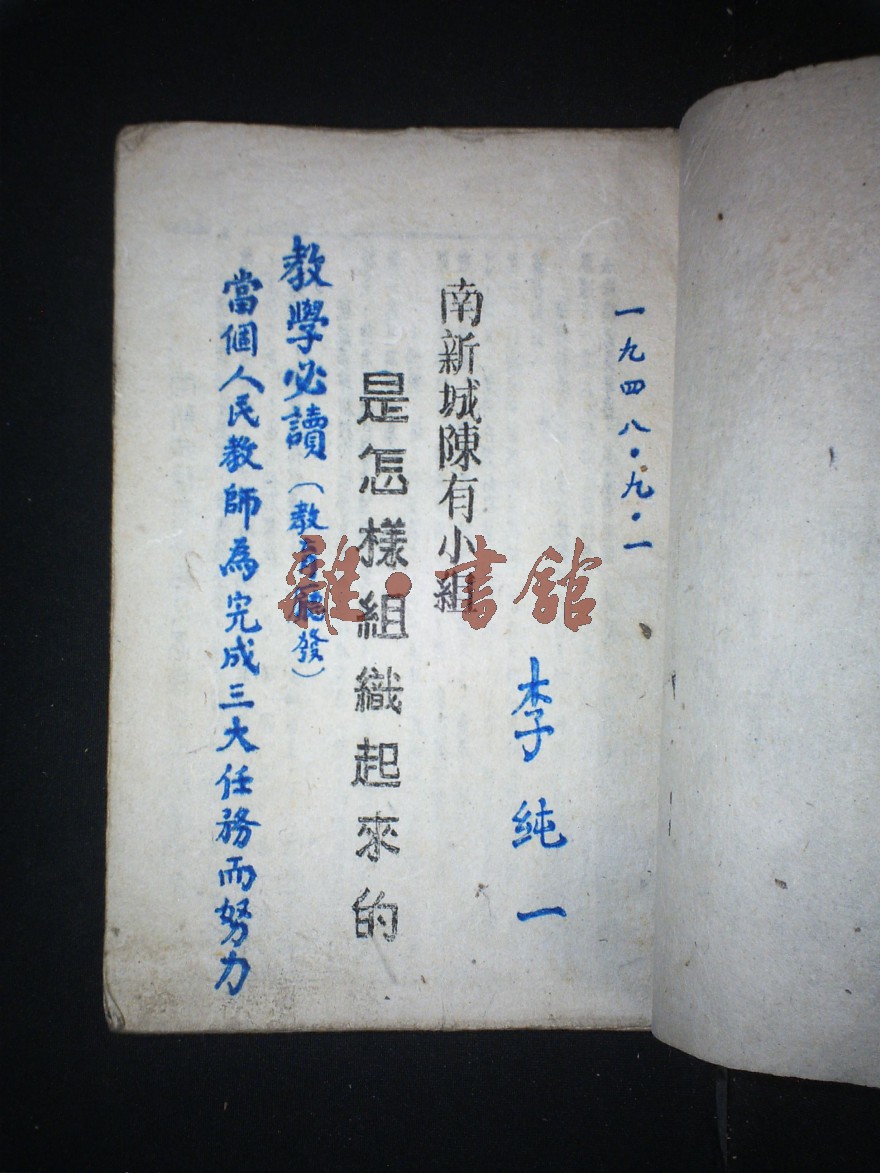 一九四八·九·一
李纯一
南新城陳有小組
是怎樣組織起來的
教學必讀（教育廳發）
當個人民教師為完成三大任務而努力
雜·書館